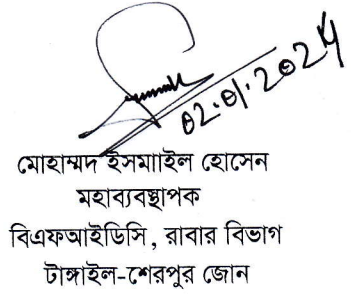 02.01.2024
মোহাম্মদ ইসমাাইল হোসেন
মহাব্যবস্থাপক
বিএফআইডিসি, রাবার বিভাগ
টাঙ্গাইল-শেরপুর জোন